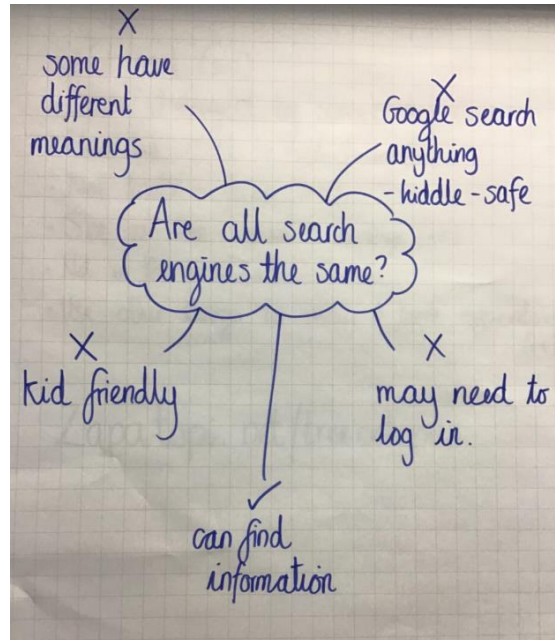 X
some have
different
meanings
X
Google search
anything
-hiddle-safe
Are all search
engines the same?
X
kid friendly
X
may need to
log in.
✓
can find
information